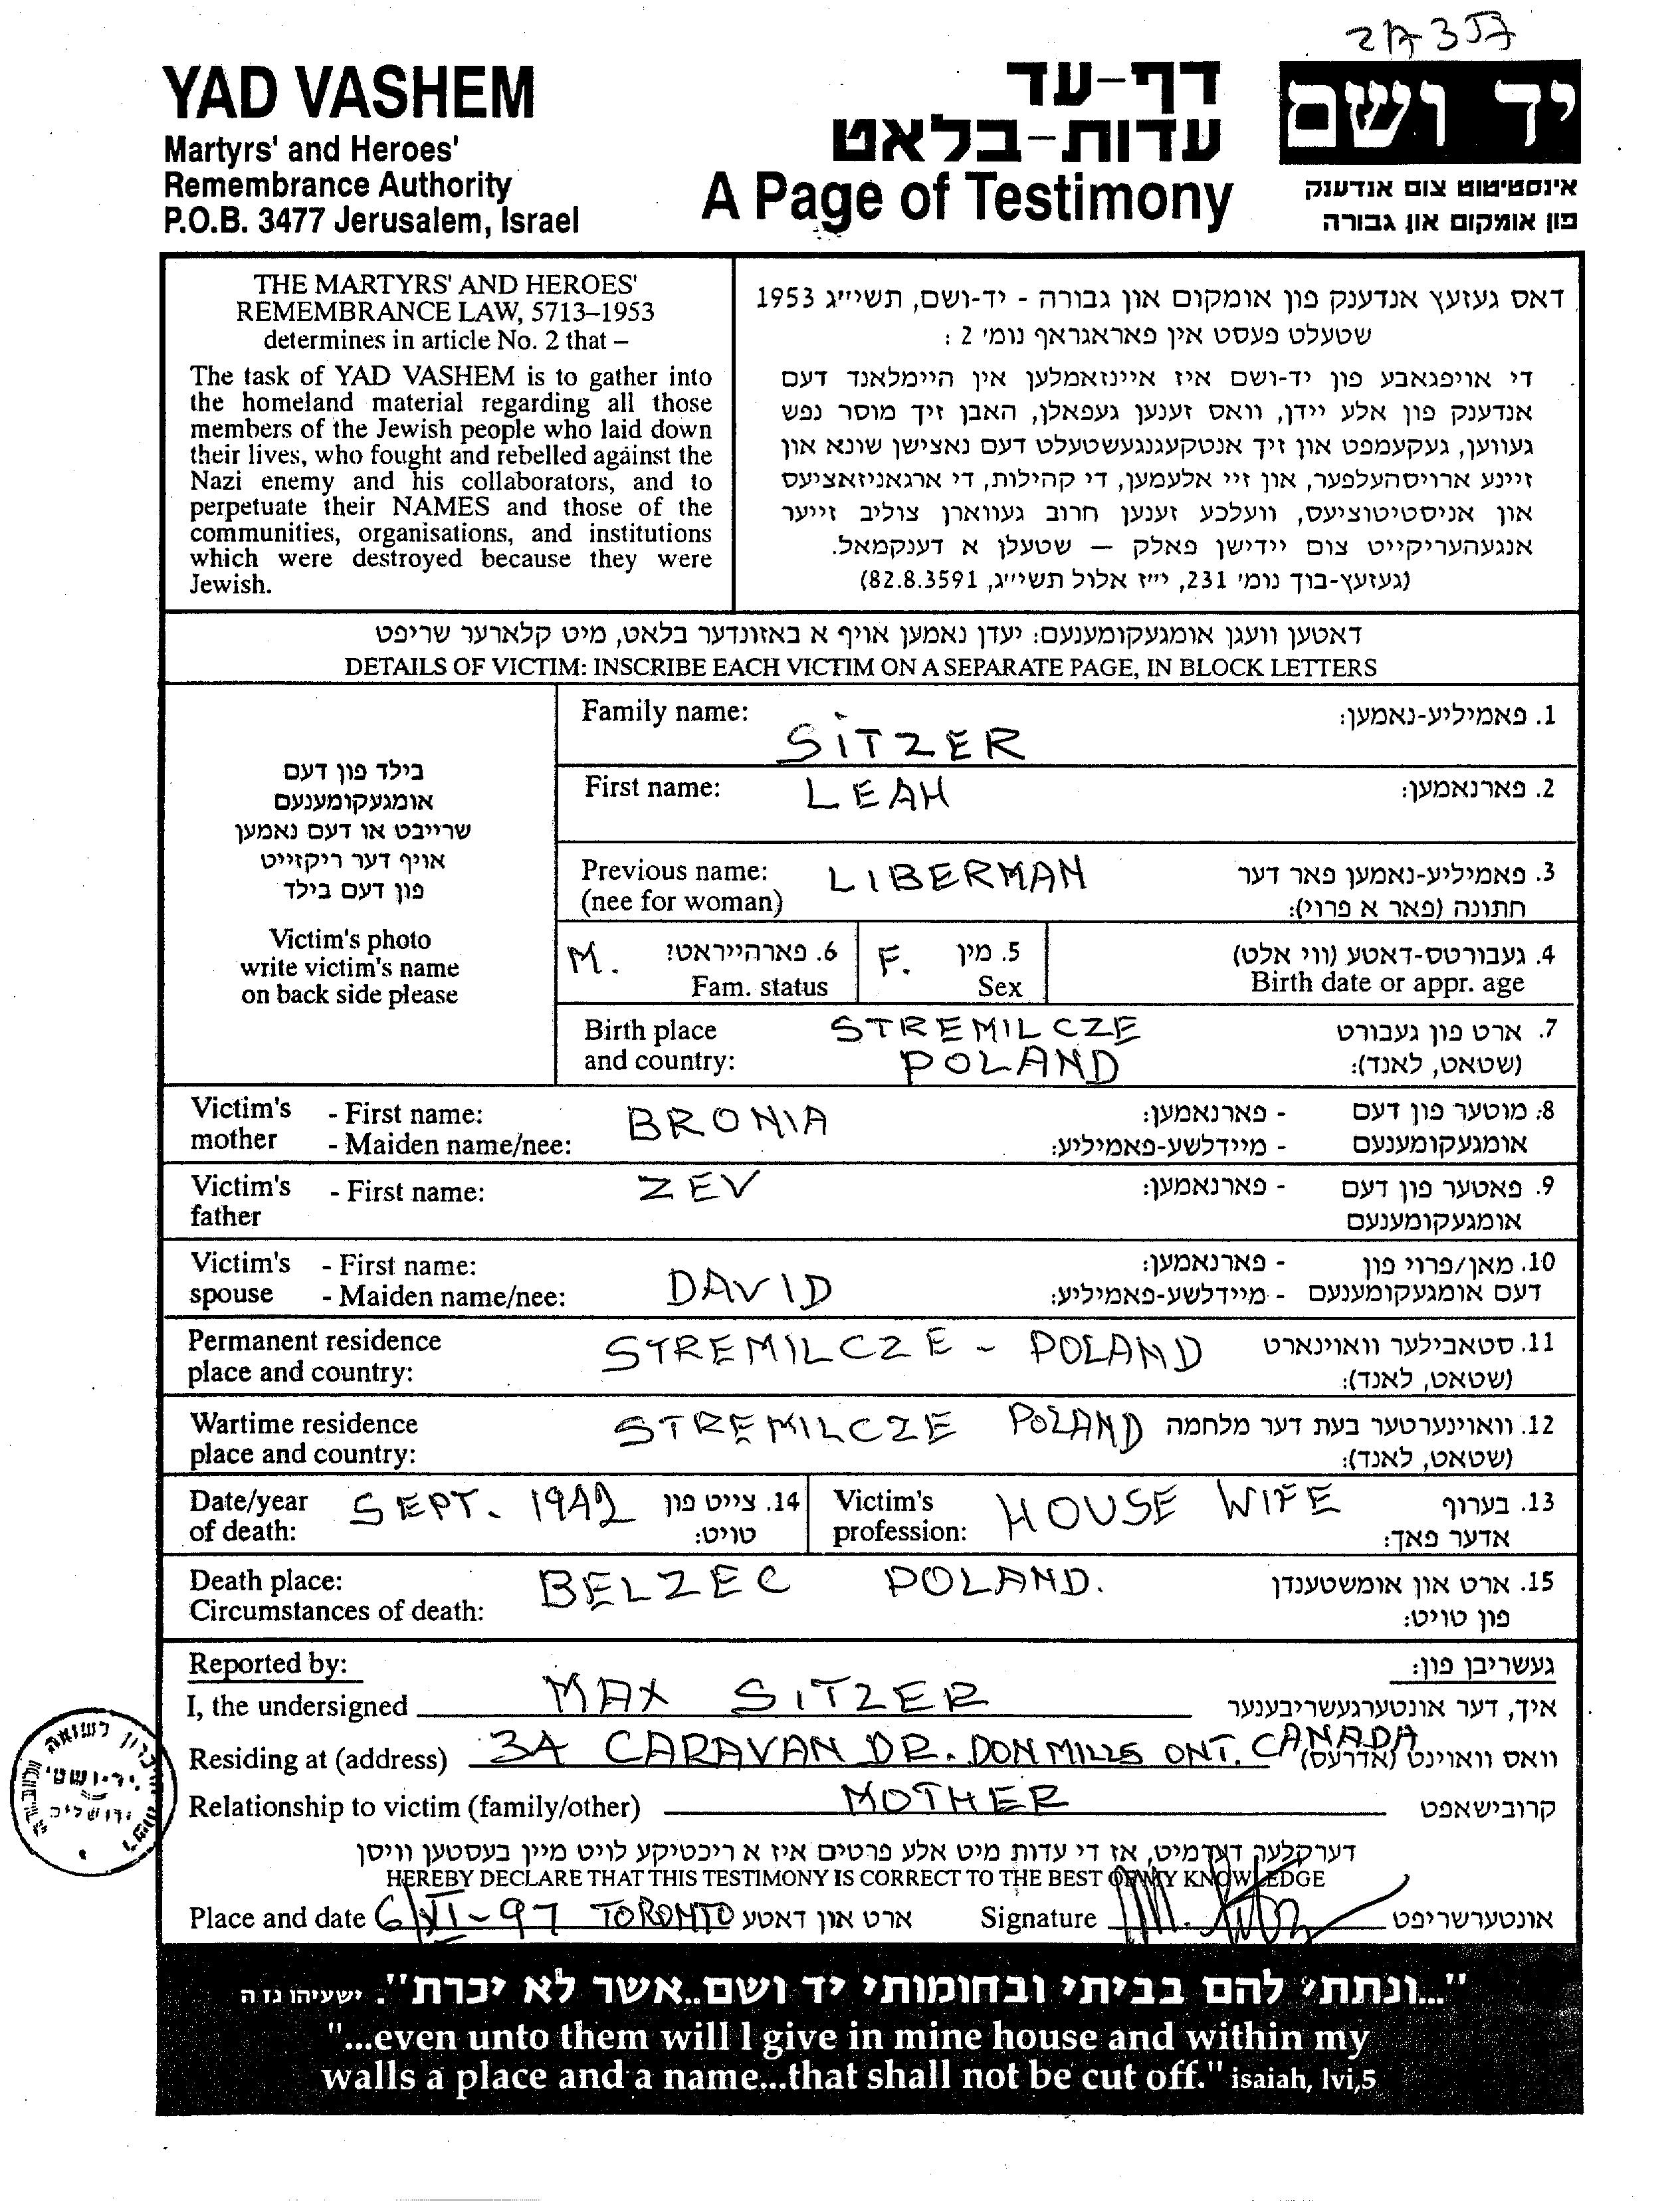 YAD VASHEM
Martyrs' and Heroes'
Remembrance Authority
P.O.B. 3477 Jerusalem, Israel
דף-עד
עדות-בלאט
A Page of Testimony
יד ושם
אינסטיטוט צום אנדענק
פון אומקום און גבורה
THE MARTYRS' AND HEROES'
REMEMBRANCE LAW, 5713–1953
determines in article No. 2 that –
The task of YAD VASHEM is to gather into
the homeland material regarding all those
members of the Jewish people who laid down
their lives, who fought and rebelled against the
Nazi enemy and his collaborators, and to
perpetuate their NAMES and those of the
communities, organisations, and institutions
which were destroyed because they were
Jewish.
דאס געזעץ אנדענק פון אומקום און גבורה - יד-ושם, תשי״ג 1953
שטעלט פעסט אין פאראגראף נומ׳ 2 :
די אויפגאבע פון יד-ושם איז איינזאמלען אין היימלאנד דעם
אנדענק פון אלע יידן, וואס זענען געפאלן, האבן זיך מוסר נפש
געווען, געקעמפט און זיך אנטקעגנגעשטעלט דעם נאצישן שונא און
זיינע ארויסהעלפער, און זיי אלעמען, די קהילות, די ארגאניזאציעס
און אניסטיטוציעס, וועלכע זענען חרוב געווארן צוליב זייער
אנגעהעריקייט צום יידישן פאלק — שטעלן א דענקמאל.
(געזעץ-בוך נומ׳ 231, י״ז אלול תשי״ג, 82.8.3591)
דאטען וועגן אומגעקומענעם: יעדן נאמען אויף א באזונדער בלאט, מיט קלארער שריפט
DETAILS OF VICTIM: INSCRIBE EACH VICTIM ON A SEPARATE PAGE, IN BLOCK LETTERS
בילד פון דעם
אומגעקומענעם
שרייבט או דעם נאמען
אויף דער ריקזייט
פון דעם בילד
Victim's photo
write victim's name
on back side please
Family name: SITZER 1. פאמיליע-נאמען:
First name: LEAH 2. פארנאמען:
Previous name: LIBERMAN 3. פאמיליע-נאמען פאר דער
(nee for woman) חתונה (פאר א פרוי):
M. 6. פארהייראט? F. 5. מין 4. געבורטס-דאטע (ווי אלט)
Fam. status Sex Birth date or appr. age
Birth place STREMILCZE 7. ארט פון געבורט
and country: POLAND (שטאט, לאנד):
Victim's - First name: BRONIA - פארנאמען: 8. מוטער פון דעם
mother - Maiden name/nee: - מיידלשע-פאמיליע: אומגעקומענעם
Victim's - First name: ZEV - פארנאמען: 9. פאטער פון דעם
father אומגעקומענעם
Victim's - First name: - פארנאמען: 10. מאן/פרוי פון
spouse - Maiden name/nee: DAVID - מיידלשע-פאמיליע: דעם אומגעקומענעם
Permanent residence STREMILCZE - POLAND 11. סטאבילער וואוינארט
place and country: (שטאט, לאנד):
Wartime residence STREMILCZE POLAND 12. וואוינערטער בעת דער מלחמה
place and country: (שטאט, לאנד):
Date/year SEPT. 1942 14. צייט פון Victim's HOUSE WIFE 13. בערוף
of death: טויט: profession: אדער פאך:
Death place: BELZEC POLAND. 15. ארט און אומשטענדן
Circumstances of death: פון טויט:
Reported by: געשריבן פון:
I, the undersigned MAX SITZER איך, דער אונטערגעשריבענער
Residing at (address) 34 CARAVAN DR. DON MILLS ONT. CANADA וואס וואוינט (אדרעס)
Relationship to victim (family/other) MOTHER קרובישאפט
דערקלער דערמיט, אז די עדות מיט אלע פרטים איז א ריכטיקע לויט מיין בעסטען וויסן
HEREBY DECLARE THAT THIS TESTIMONY IS CORRECT TO THE BEST OF MY KNOWLEDGE
Place and date 6/XI-97 TORONTO ארט און דאטע Signature אונטערשריפט
"...ונתתי להם בביתי ובחומותי יד ושם..אשר לא יכרת". ישעיהו נו ה
"...even unto them will I give in mine house and within my
walls a place and a name...that shall not be cut off." isaiah, lvi,5